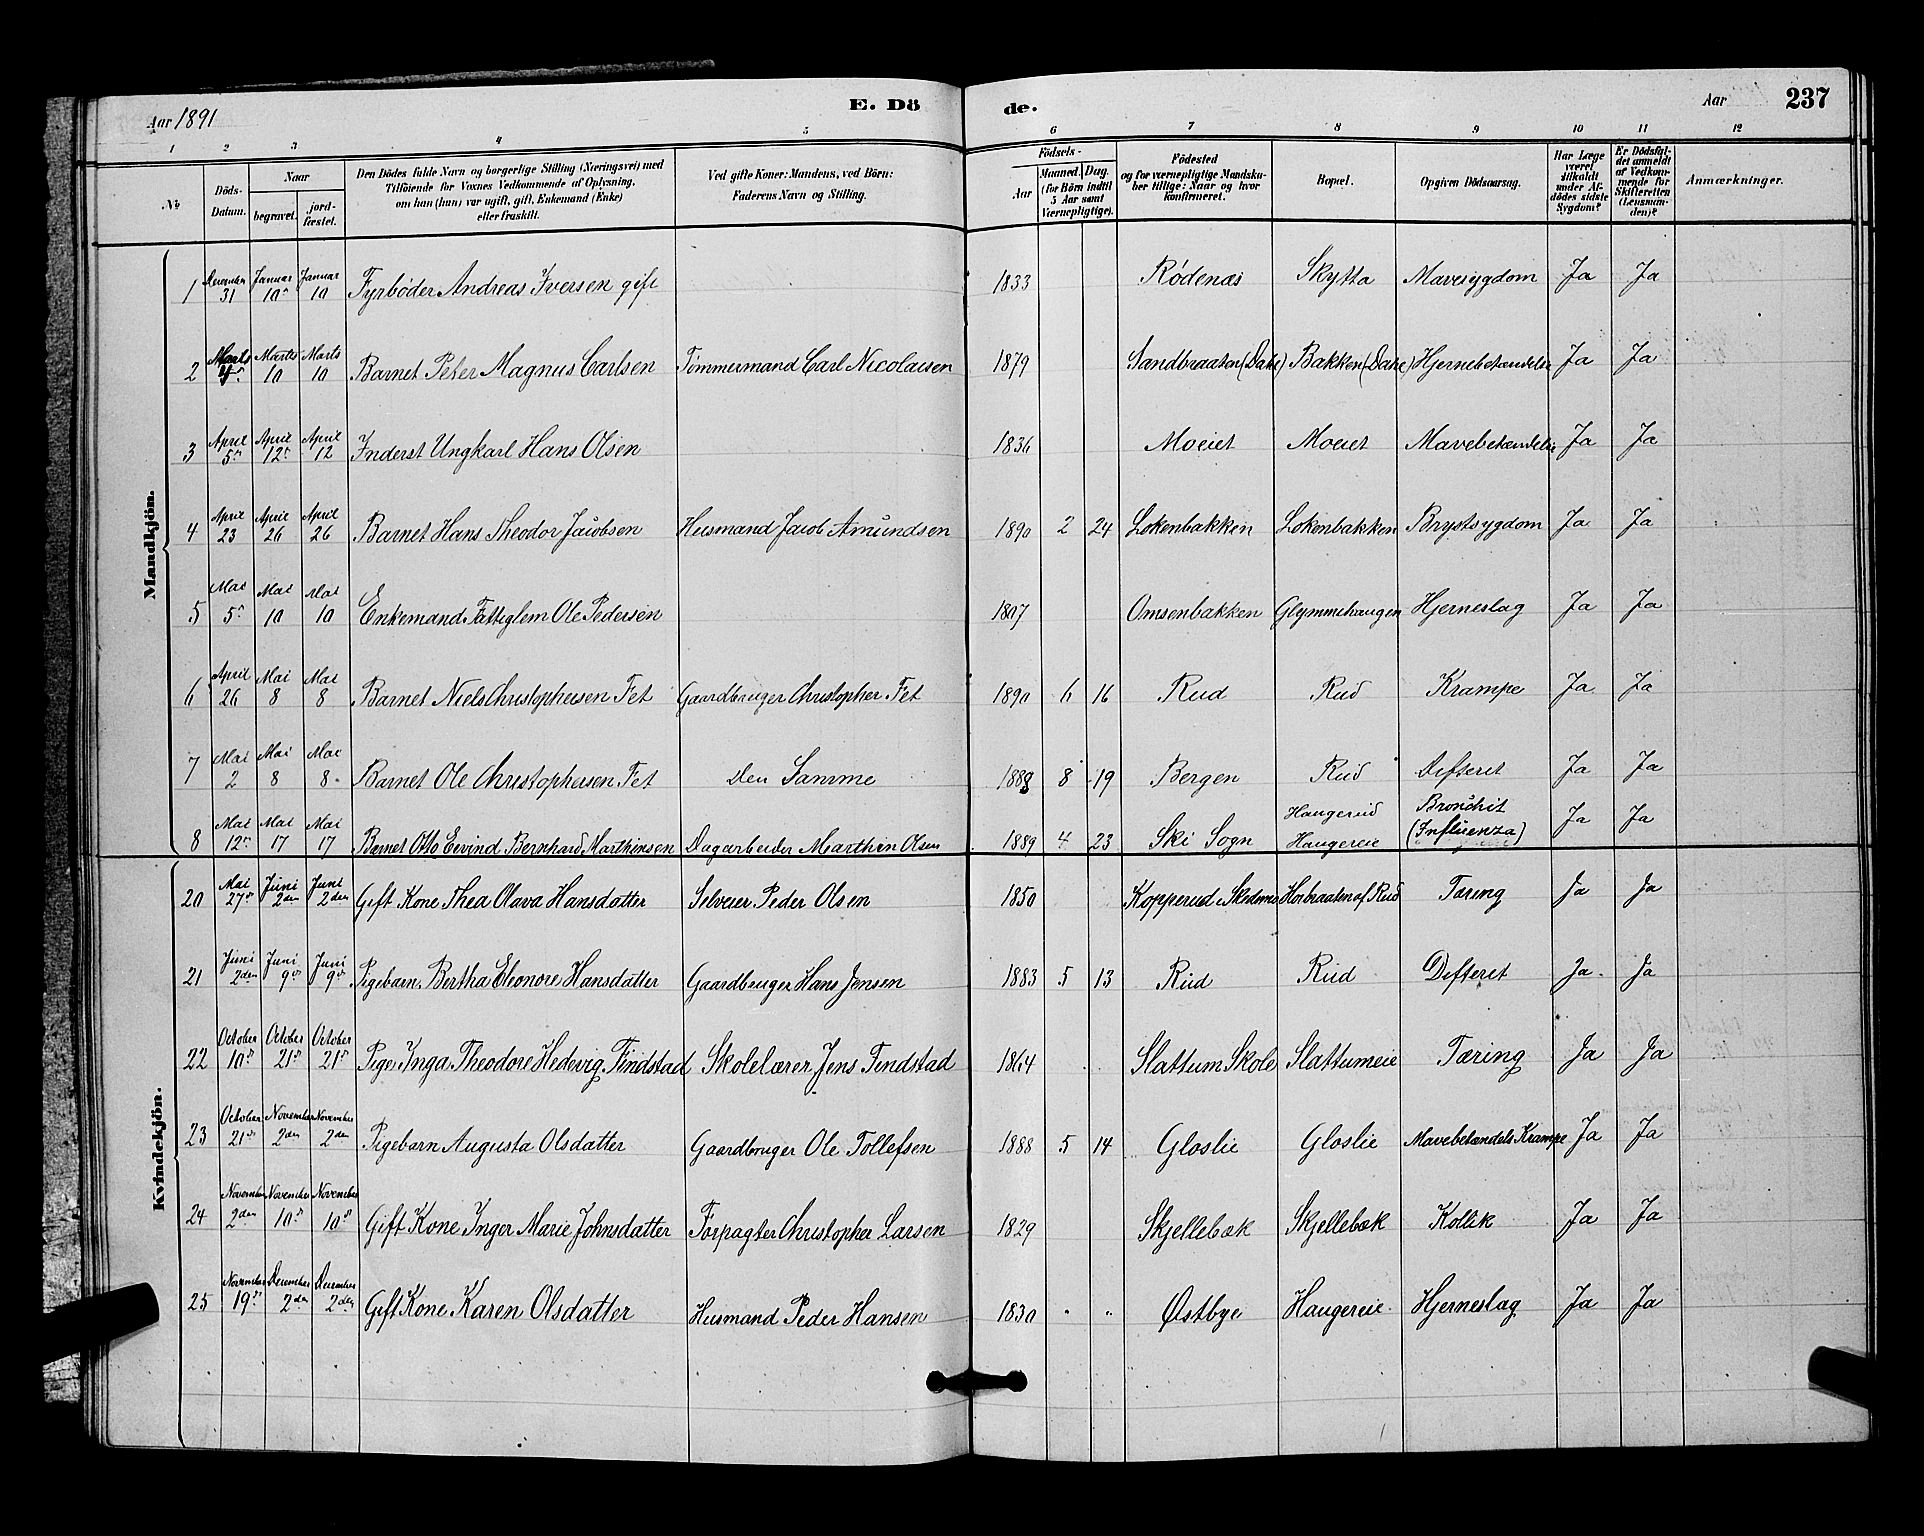 Aar 1891 E. Dö de. Aar 237
1 2 3 4 5 6 7 8 9 10 11 12
No. Döds-Datum. Naar begravet. jord-fæstet. Den Dödes fulde Navn og borgerlige Stilling (Næringsvei) med Tilföiende for Voxnes Vedkommende af Oplysning, om han (hun) var ugift, gift, Enkemand (Enke) eller fraskilt. Ved gifte Koner: Mandens, ved Börn: Faderens Navn og Stilling. Födsels- Aar Maaned. Dag. (for Börn indtil 5 Aar samt Værnepligtige). Födested og for værnepligtige Mandskaber tillige: Naar og hvor konfirmeret. Bopæl. Opgiven Dödsaarsag. Har Læge været tilkaldt under Afdödes sidste Sygdom? Er Dödsfaldet anmeldt af Vedkommende for Skifteretten (Lensmanden)? Anmærkninger.
Mandkjön.
1 December 31 Januar 10 Januar 10 Fyrbøder Andreas Iversen gift 1833 Rødenæs Skytta Mavesygdom Ja Ja
2 Marts Marts 10 Marts 10 Barnet Peter Magnus Carlsen Tømmermand Carl Nicolaisen 1879 Sandbraaten (Dahl) Bakken (Dahl) Hjernebetændelse Ja Ja
3 April 5 April 12 April 12 Inderst Ungkarl Hans Olsen 1836 Moeiet Moeiet Mavebetændelse Ja Ja
4 April 23 April 26 April 26 Barnet Hans Theodor Jacobsen Husmand Jacob Amundsen 1890 2 24 Løkenbakken Løkenbakken Brystsygdom Ja Ja
5 Mai 5 Mai 10 Mai 10 Enkemand Fattiglem Ole Pedersen 1807 Omsenbakken Glymmehaugen Hjerneslag Ja Ja
6 April 26 Mai 8 Mai 8 Barnet Niels Christophersen Fet Gaardbruger Christopher Fet 1890 6 16 Rud Rud Krampe Ja Ja
7 Mai 2 Mai 8 Mai 8 Barnet Ole Christophersen Fet Den Samme 1888 8 19 Bergen Rud Difterit Ja Ja
8 Mai 12 Mai 17 Mai 17 Barnet Otto Eivind Bernhard Marthinsen Dagarbeider Marthin Olsen 1889 4 23 Ski Sogn Haugerud Haugereie Bronchit (Influenza) Ja Ja
Kvindekjön.
20 Mai 27 Juni 2den Juni 2den Gift Kone Thea Olava Hansdatter Selveier Peder Olsen 1850 Kopperud i Skedsmo Horbraaten af Rud Tæring Ja Ja
21 Juni 2den Juni 9 Juni 9 Pigebarn Bertha Eleonore Hansdatter Gaardbruger Hans Jensen 1883 5 13 Rud Rud Difterit Ja Ja
22 October 10 October 21 October 21 Pige Inga Theodore Hedevig Findstad Skolelærer Jens Findstad 1864 Slattum Skole Slattumeie Tæring Ja Ja
23 October 21 November 2den November 2den Pigebarn Augusta Olsdatter Gaardbruger Ole Tollefsen 1888 5 14 Gloslie Gloslie Mavebetændels Krampe Ja Ja
24 November 2den November 10 November 10 Gift Kone Inger Marie Johnsdatter Forpagter Christopher Larsen 1829 Skjellebæk Skjellebæk Kolik Ja Ja
25 November 19 December 2den December 2den Gift Kone Karen Olsdatter Husmand Peder Hansen 1830 " " Østbye Haugereie Hjerneslag Ja Ja